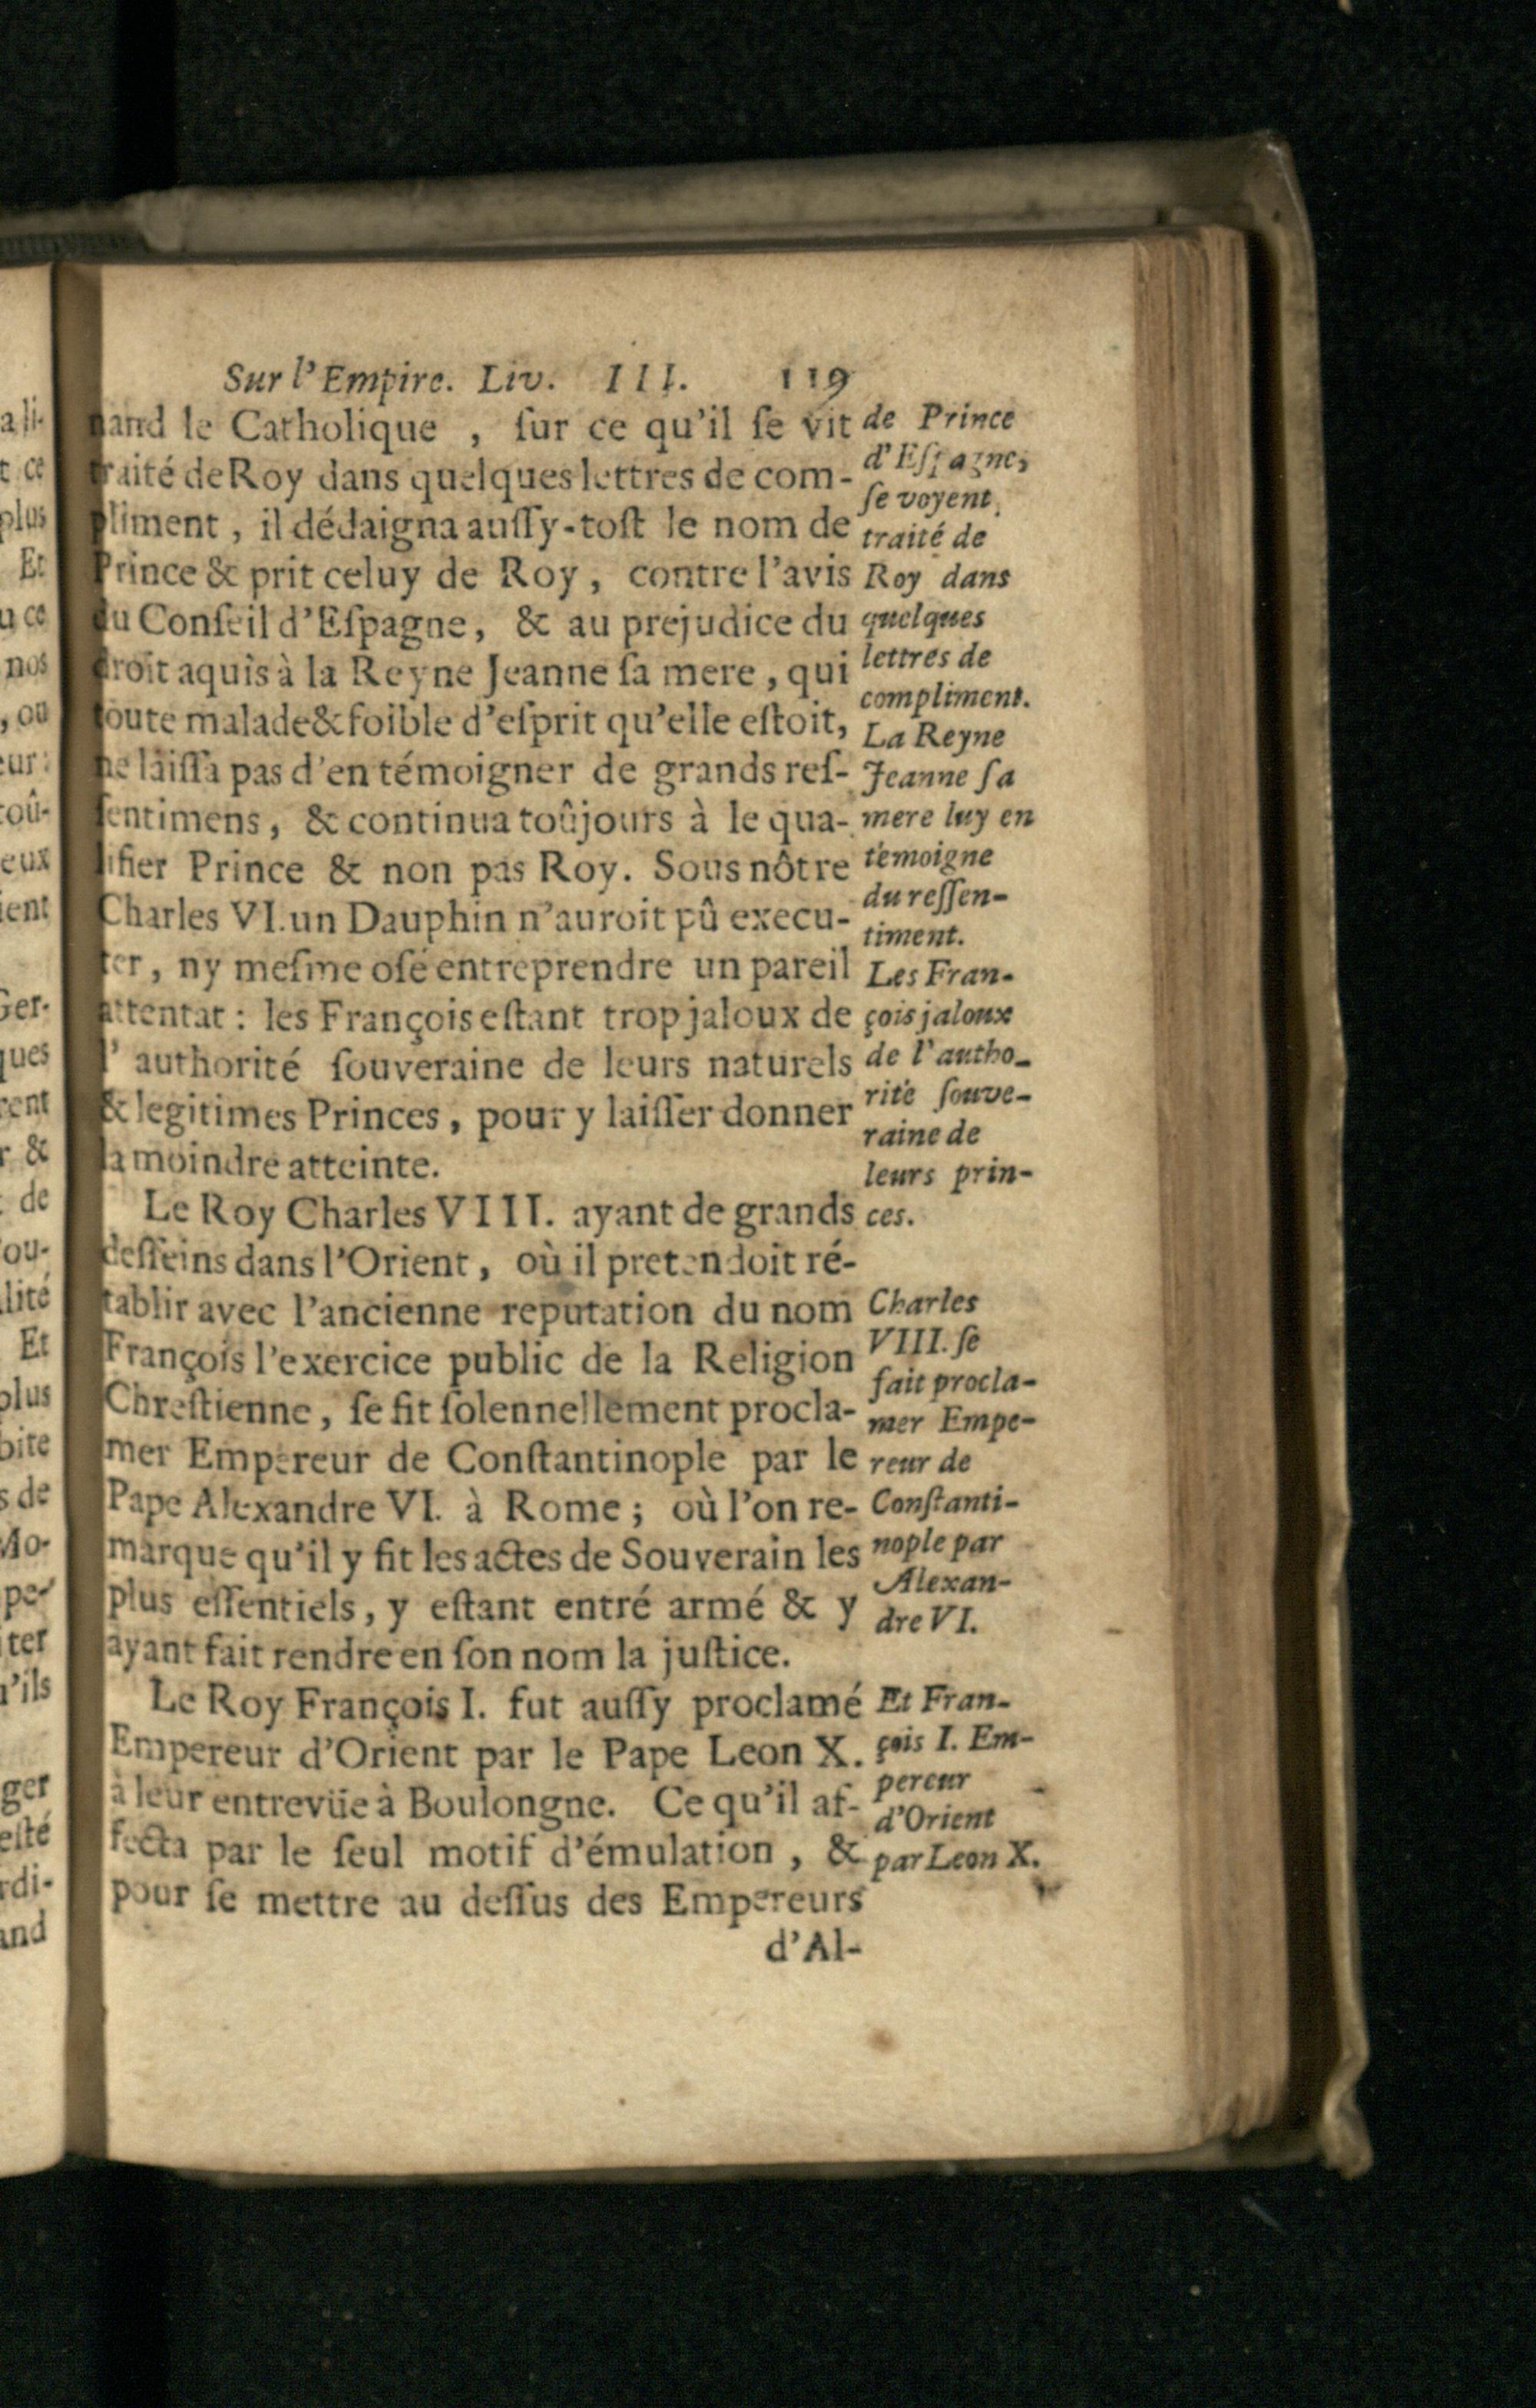 Sur l'Empire. Liv. III. 119
nand le Catholique , ſur ce qu'il ſe vit
traité de Roy dans quelques lettres de com-
pliment , il dédaigna auſſy-toſt le nom de
Prince & prit celuy de Roy , contre l'avis
du Conſeil d'Eſpagne, & au prejudice du
droit aquis à la Reyne Jeanne ſa mere , qui
toute malade & foible d'eſprit qu'elle eſtoit,
ne laiſſa pas d'en témoigner de grands reſ-
ſentimens, & continua toûjours à le qua-
lifier Prince & non pas Roy. Sous nôtre
Charles VI. un Dauphin n'auroit pû execu-
ter, ny meſme oſé entreprendre un pareil
attentat : les François eſtant trop jaloux de
l' authorité ſouveraine de leurs naturels
& legitimes Princes , pour y laiſſer donner
la moindre atteinte.
Le Roy Charles VIII. ayant de grands
deſſeins dans l'Orient , où il pretendoit ré-
tablir avec l'ancienne reputation du nom
François l'exercice public de la Religion
Chreſtienne, ſe fit ſolennellement procla-
mer Empereur de Conſtantinople par le
Pape Alexandre VI. à Rome ; où l'on re-
marque qu'il y fit les actes de Souverain les
plus eſſentiels, y eſtant entré armé & y
ayant fait rendre en ſon nom la juſtice.
Le Roy François I. fut auſſy proclamé
Empereur d'Orient par le Pape Leon X.
à leur entrevüe à Boulongne. Ce qu'il af-
fecta par le ſeul motif d'émulation , &
pour ſe mettre au deſſus des Empereurs
d'Al-
de Prince
d'Eſpagne,
ſe voyent
traité de
Roy dans
quelques
lettres de
compliment.
La Reyne
Jeanne ſa
mere luy en
témoigne
du reſſen-
timent.
Les Fran-
çois jaloux
de l'autho-
rité ſouve-
raine de
leurs prin-
ces.
Charles
VIII. ſe
fait procla-
mer Empe-
reur de
Conſtanti-
nople par
Alexan-
dre VI.
Et Fran-
çois I. Em-
pereur
d'Orient
par Leon X.